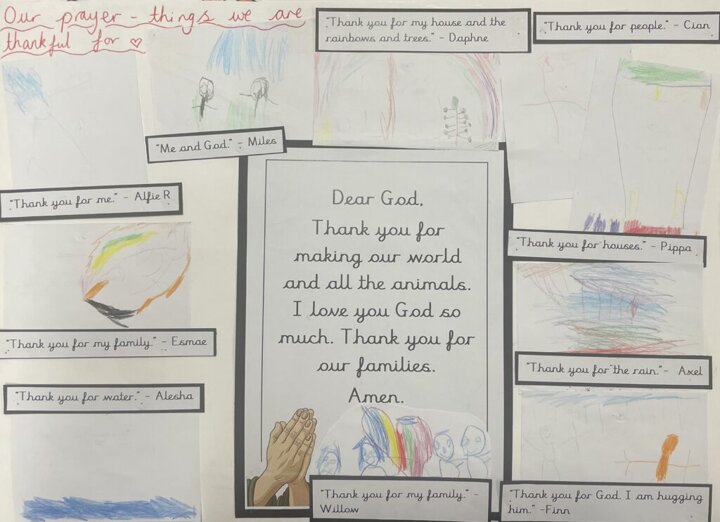 Our prayer - things we are
thankful for ♡
"Thank you for my house and the
rainbows and trees." - Daphne
"Thank you for people." - Cian
"Me and God." - Miles
"Thank you for me." - Alfie R
"Thank you for houses." - Pippa
"Thank you for my family." - Esmae
"Thank you for the rain." - Axel
"Thank you for water." - Alesha
Dear God,
Thank you for
making our world
and all the animals.
I love you God so
much. Thank you for
our families.
Amen.
"Thank you for my family." -
Willow
"Thank you for God. I am hugging
him." -Finn